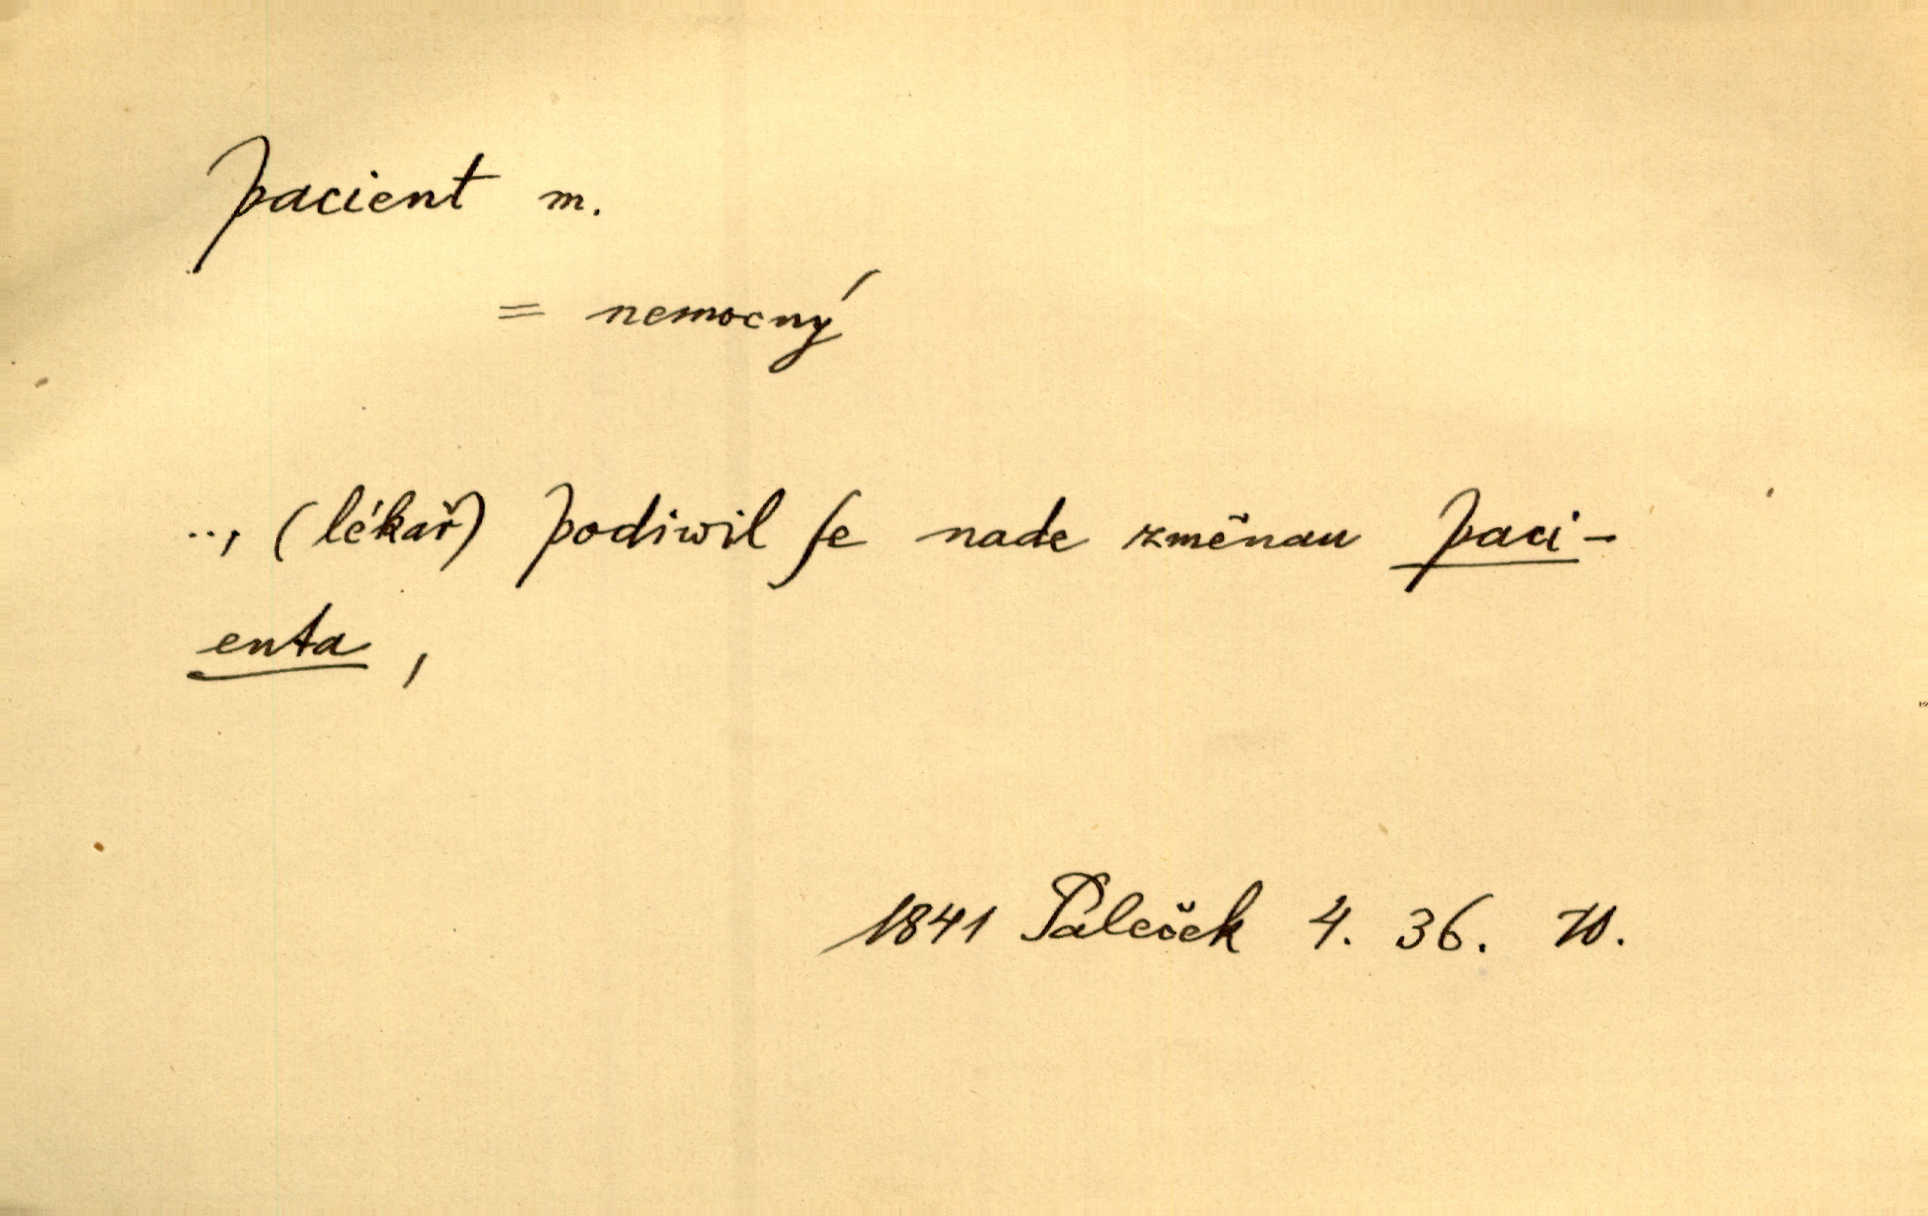 pacient m.
= nemocný
.., (lékař) podiwil ſe nade změnau paci-
enta,
1841 Paleček 4. 36. 70.